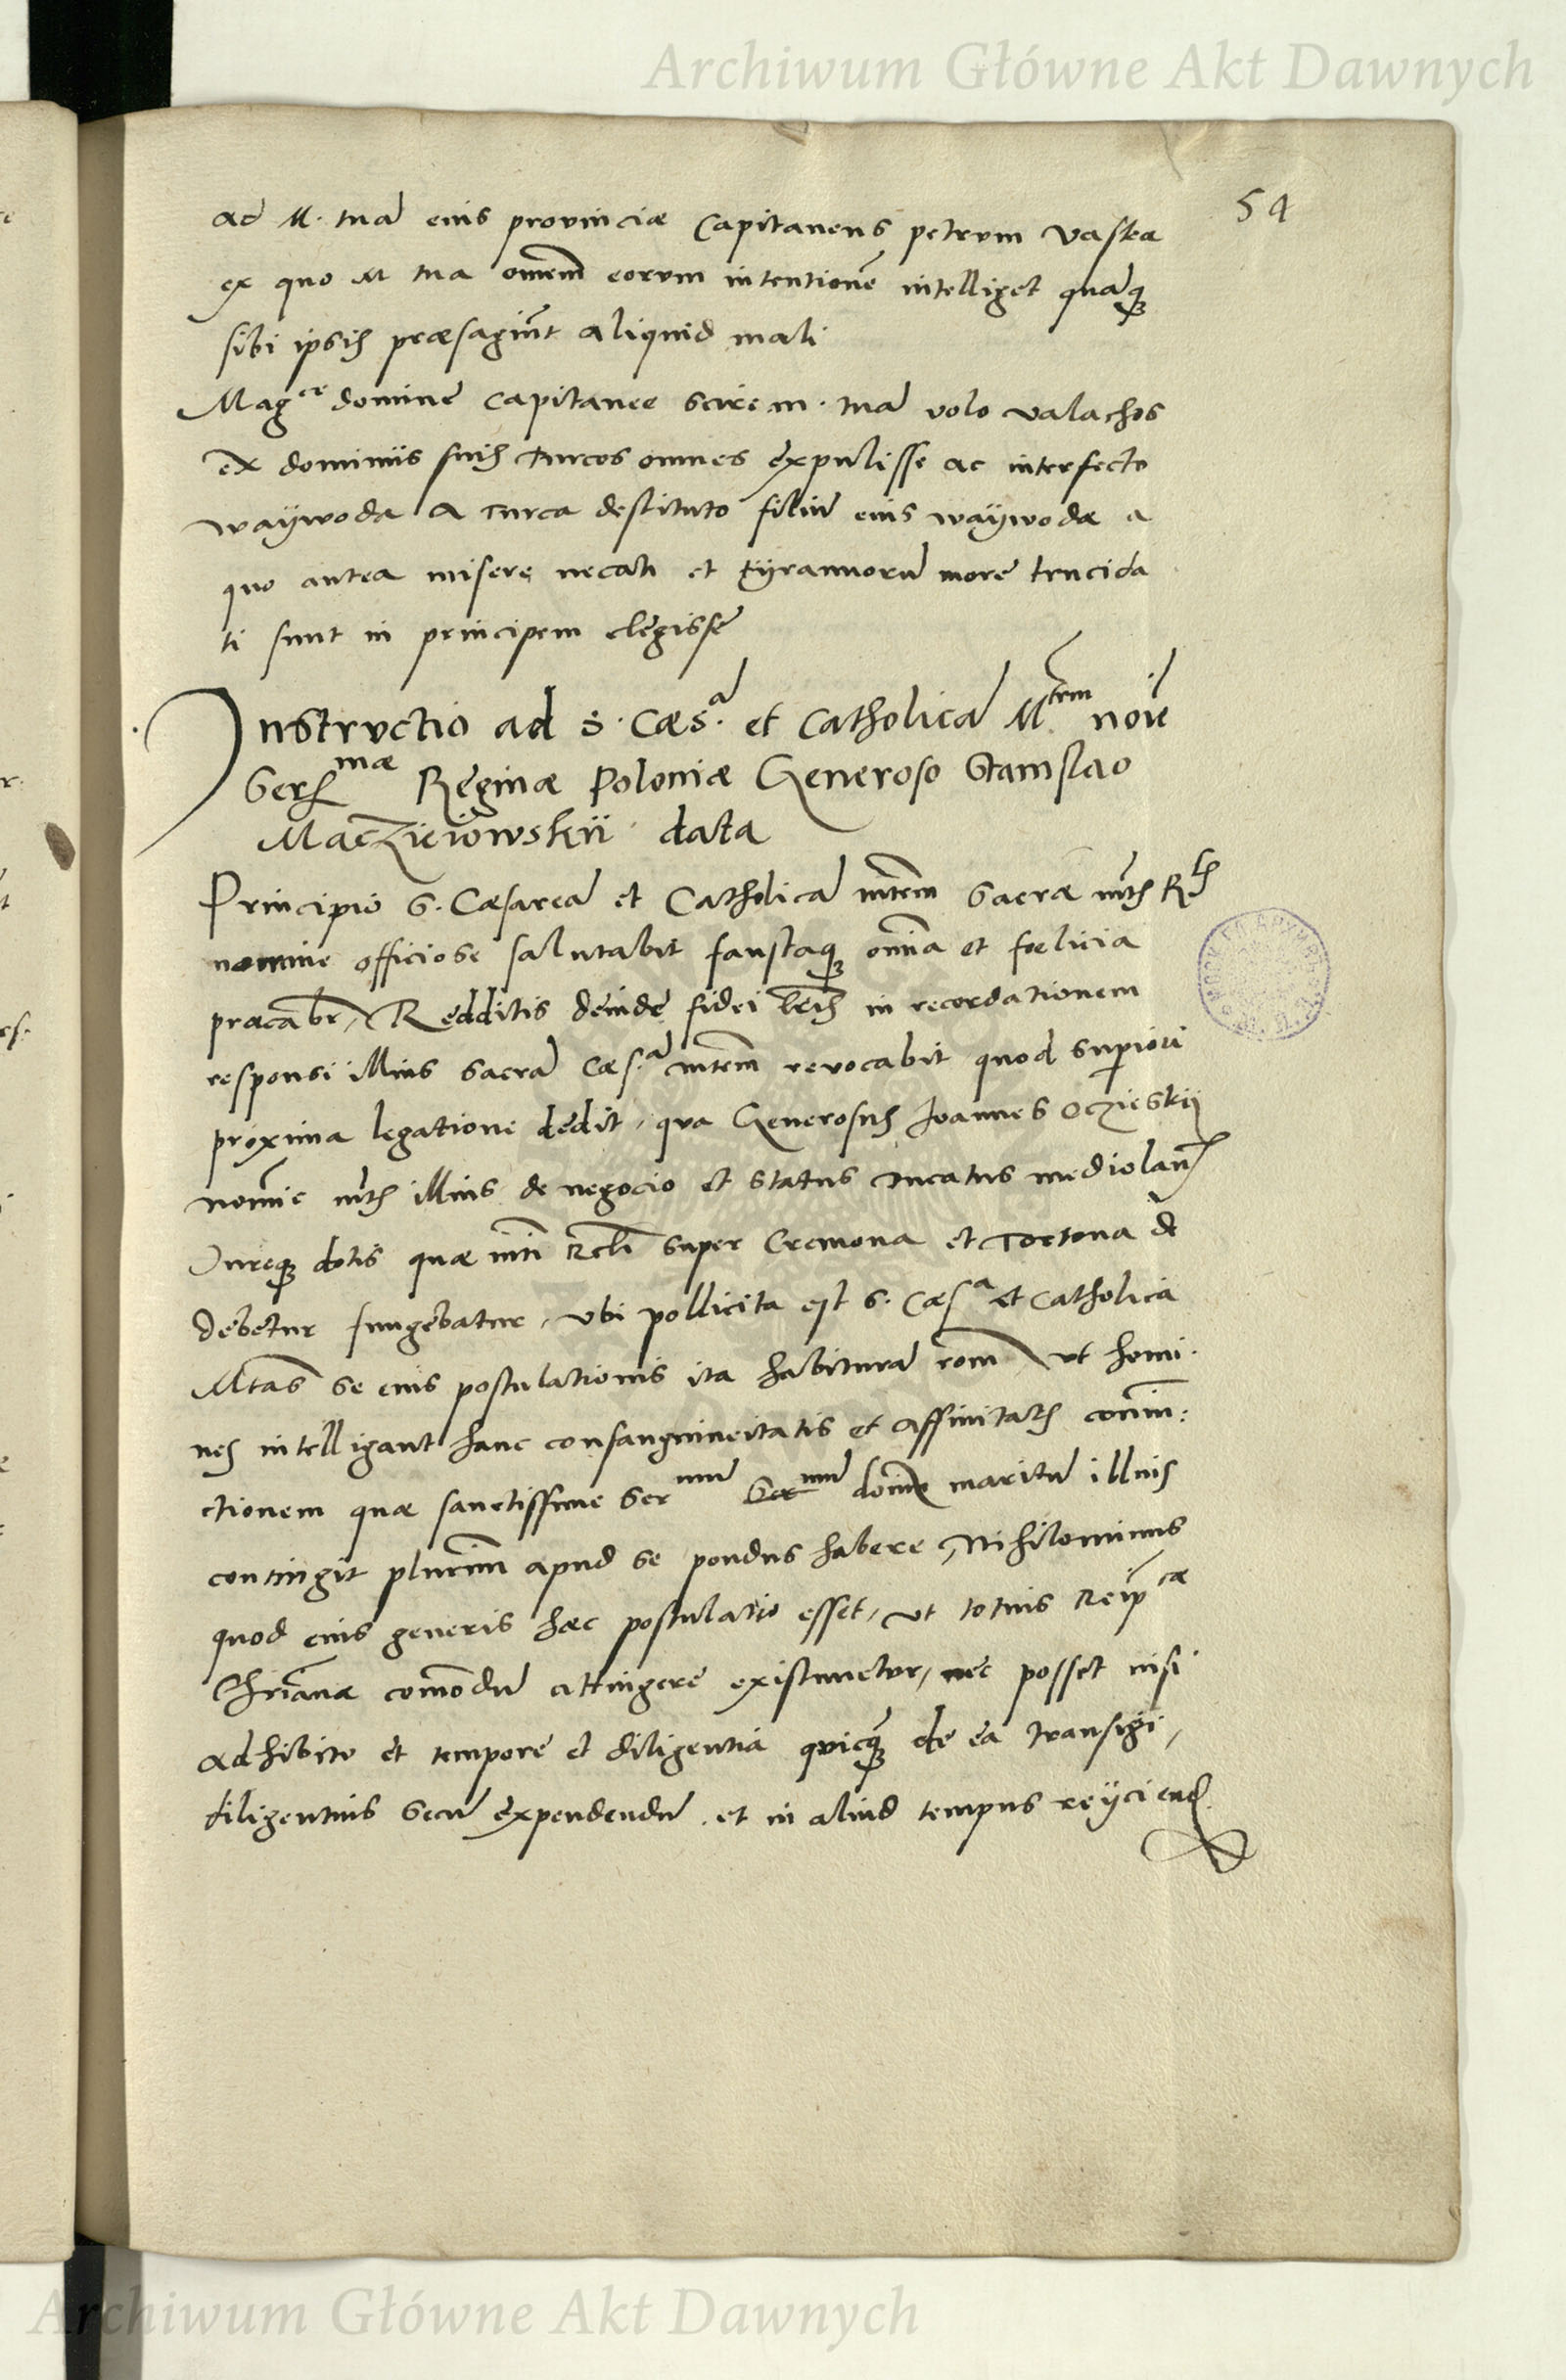 Archiwum Główne Akt Dawnych
54
ad M. tuã eius prouinciæ Capitaneus petrum Vastea
ex quo M tua omnẽm eorum intentionẽ intelliget quãq;
sibi ipsis præsagiũt aliquid mali
Magce domine Capitanee scire m. tuã volo valachos
ex dominiis suis Turcos omnes expulisse ac interfecto
waÿwoda a Turca destituto filiũ eius waÿwodæ a
quo antea misere necati et tÿrannorũ more trucida
ti sunt in principem elegisse
Instructio ad S. Cæs.ã et Catholicã Mtem noĩe
Sersmae Reginæ Poloniæ Generoso Stanislao
Macziieiowskii data
Principio S. Cæsareã et Catholicã mtẽm Sacræ mtis Rlis
nomine officiose salutabit faustaq; omnĩa et fœlicia
præcabr, Redditis deinde fidei lrĩs in recordationem
responsi illius Sacrã Cæs.ã mtẽm reuocabit quod superiori
proxima legatione dedit, qua Generosus Joannes Oczieskij
nomĩe mtis illius de negocio et status Ducatus mediolañ
Jureq; dotis quæ mtĩ Rlĩ super Cremona et Tortona de
debetur fungebatur, vbi pollicita est S. Cæs.a et Catholica
Mtas se eius postulationis ita habiturã rom̃, vt homi.
nes intelligant hanc consanguineitatis et affinitatis coniũ:
ctionem quæ sanctissime Sermũ Sermũ domĩn maritũ illius
contingit plurim̃ apud se pondus habere, Nihilominus
quod eius generis hæc postulatio esset, vt totius Reipcæ
Chriãnæ comõdũ attingere existimetur, nec posset nisi
adhibito et tempore et diligentia quicq̃; de ea transigi,
diligentius secũ expendendũ. et in aliud tempus reÿciend
Archiwum Główne Akt Dawnych